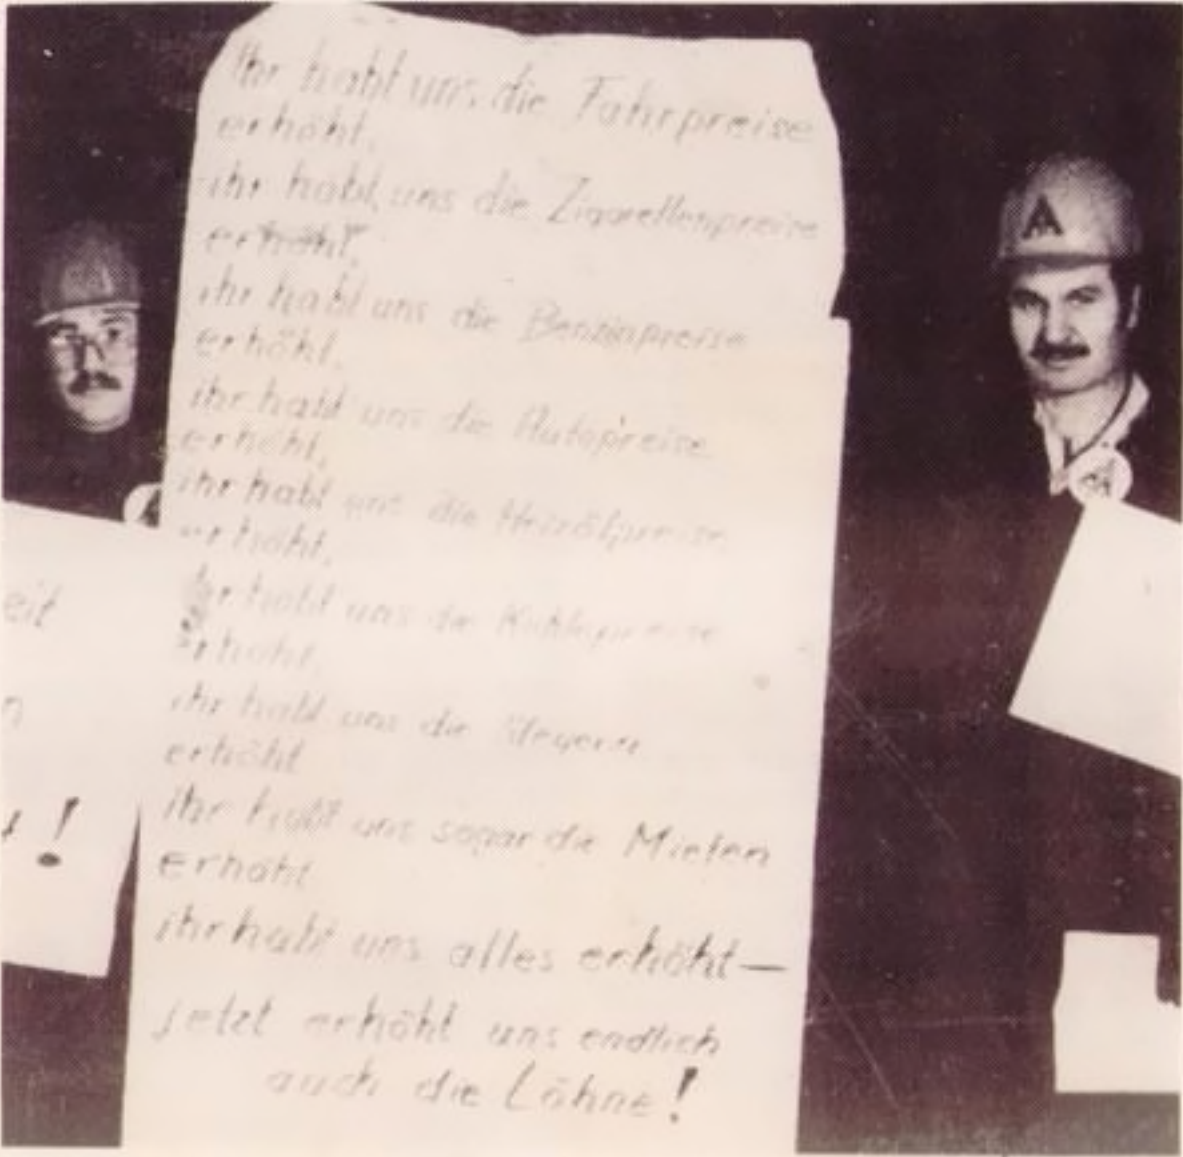 Ihr habt uns die Fahrpreise
erhöht,
ihr habt uns die Zigarettenpreise
erhöht,
ihr habt uns die Benzinpreise
erhöht,
ihr habt uns die Autopreise
erhöht,
ihr habt uns die Heizölpreise
erhöht,
ihr habt uns die Kohlepreise
erhöht,
ihr habt uns die Steuern
erhöht
ihr habt uns sogar die Mieten
erhöht
ihr habt uns alles erhöht—
jetzt erhöht uns endlich
auch die Löhne!
eit
n
!
A